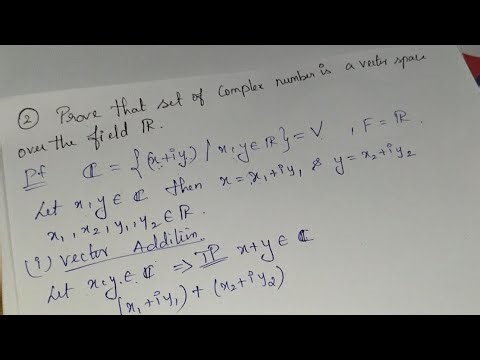 ② Prove that set of complex number is a vector space
over the field ℝ.
Pf ℂ = {(x+iy) / x,y ∈ ℝ} = V , F = ℝ.
Let x,y ∈ ℂ then x = x₁+iy₁ & y = x₂+iy₂
x₁, x₂, y₁, y₂ ∈ ℝ.
(i) Vector Addition
Let x,y ∈ ℂ ⇒ TP x+y ∈ ℂ
(x₁+iy₁) + (x₂+iy₂)